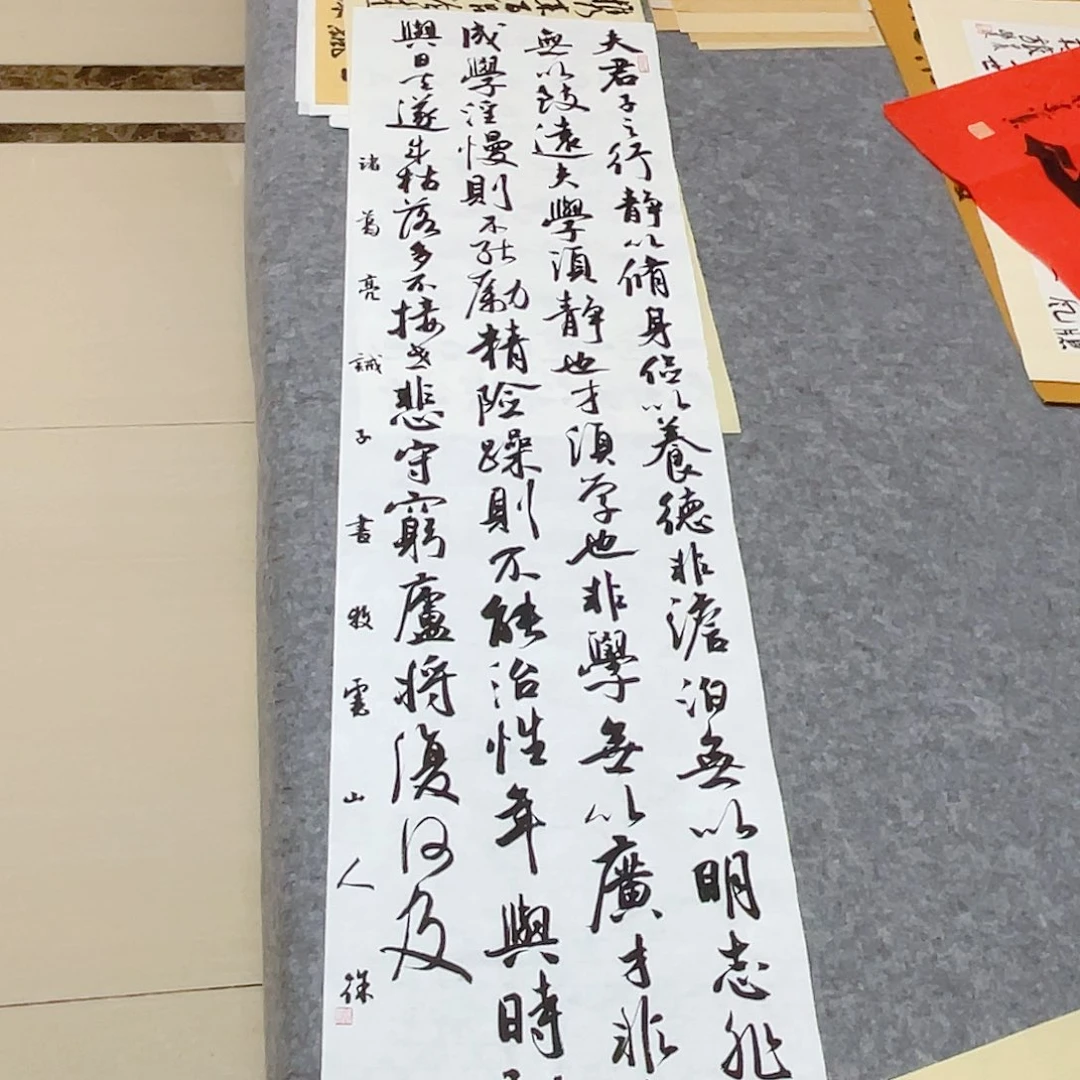 夫君子之行静以脩身俭以養德非澹泊無以明志非
無以致遠夫學須静也才須学也非學無以廣才非
成學淫慢則不能勵精险躁則不能治性年與時
與日去遂成枯落多不接世悲守窮廬将復何及
诸葛亮誡子書牧雲山人徐